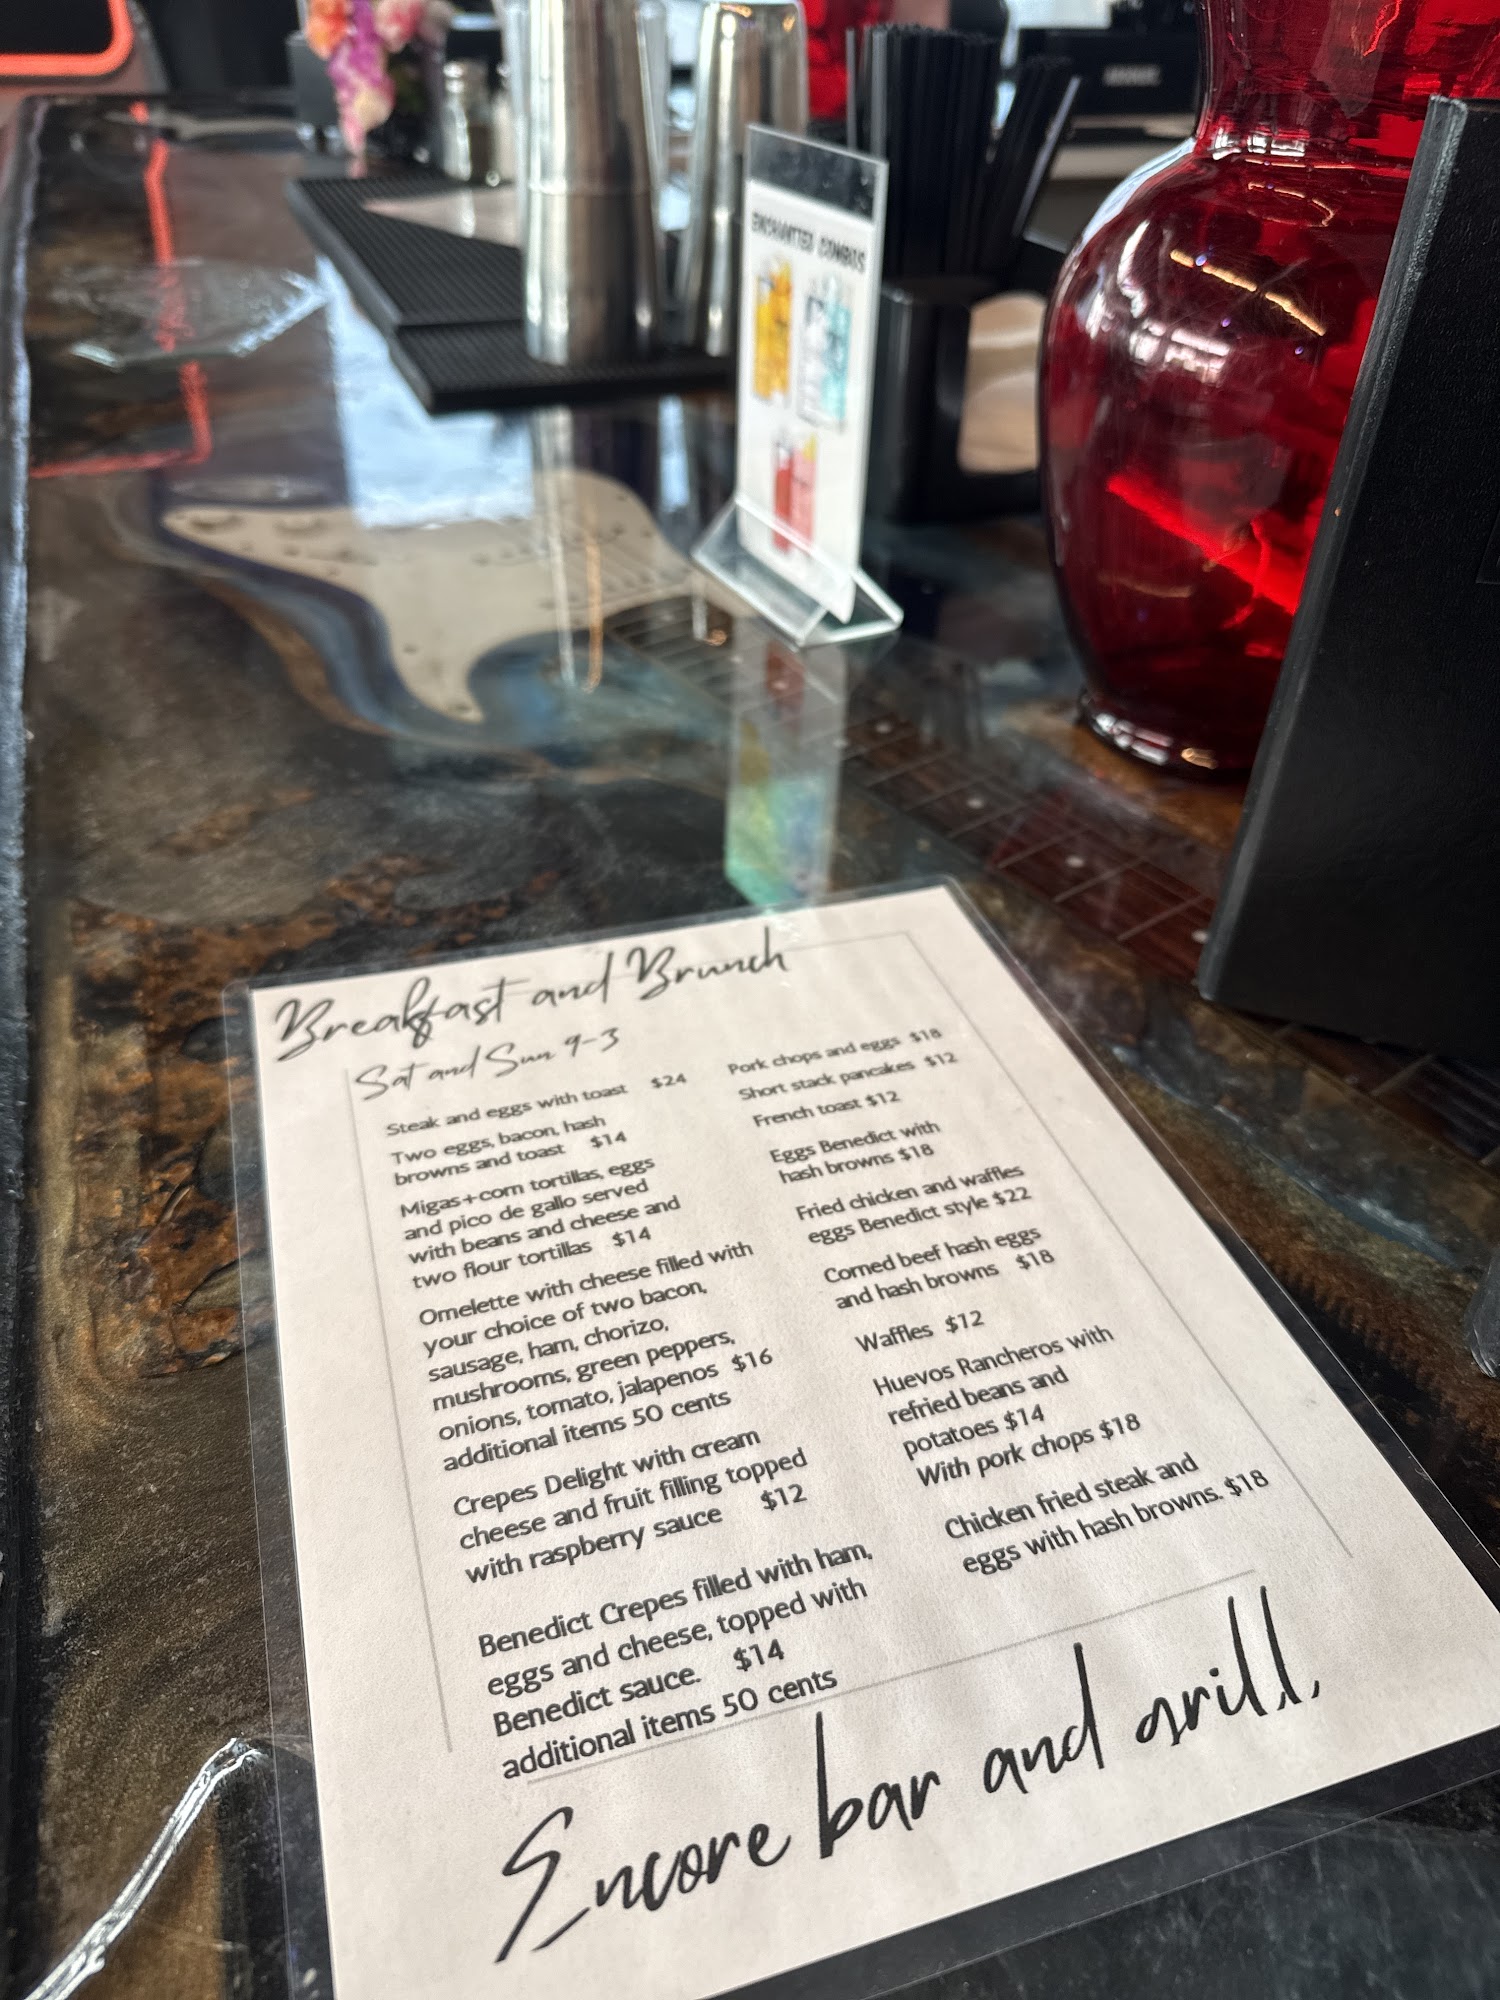 ENCHANTED COMBOS
Breakfast and Brunch
Sat and Sun 9-3
Steak and eggs with toast $24
Two eggs, bacon, hash
browns and toast $14
Migas+corn tortillas, eggs
and pico de gallo served
with beans and cheese and
two flour tortillas $14
Omelette with cheese filled with
your choice of two bacon,
sausage, ham, chorizo,
mushrooms, green peppers,
onions, tomato, jalapenos $16
additional items 50 cents
Crepes Delight with cream
cheese and fruit filling topped
with raspberry sauce $12
Benedict Crepes filled with ham,
eggs and cheese, topped with
Benedict sauce. $14
additional items 50 cents
Pork chops and eggs $18
Short stack pancakes $12
French toast $12
Eggs Benedict with
hash browns $18
Fried chicken and waffles
eggs Benedict style $22
Corned beef hash eggs
and hash browns $18
Waffles $12
Huevos Rancheros with
refried beans and
potatoes $14
With pork chops $18
Chicken fried steak and
eggs with hash browns. $18
Encore bar and grill,